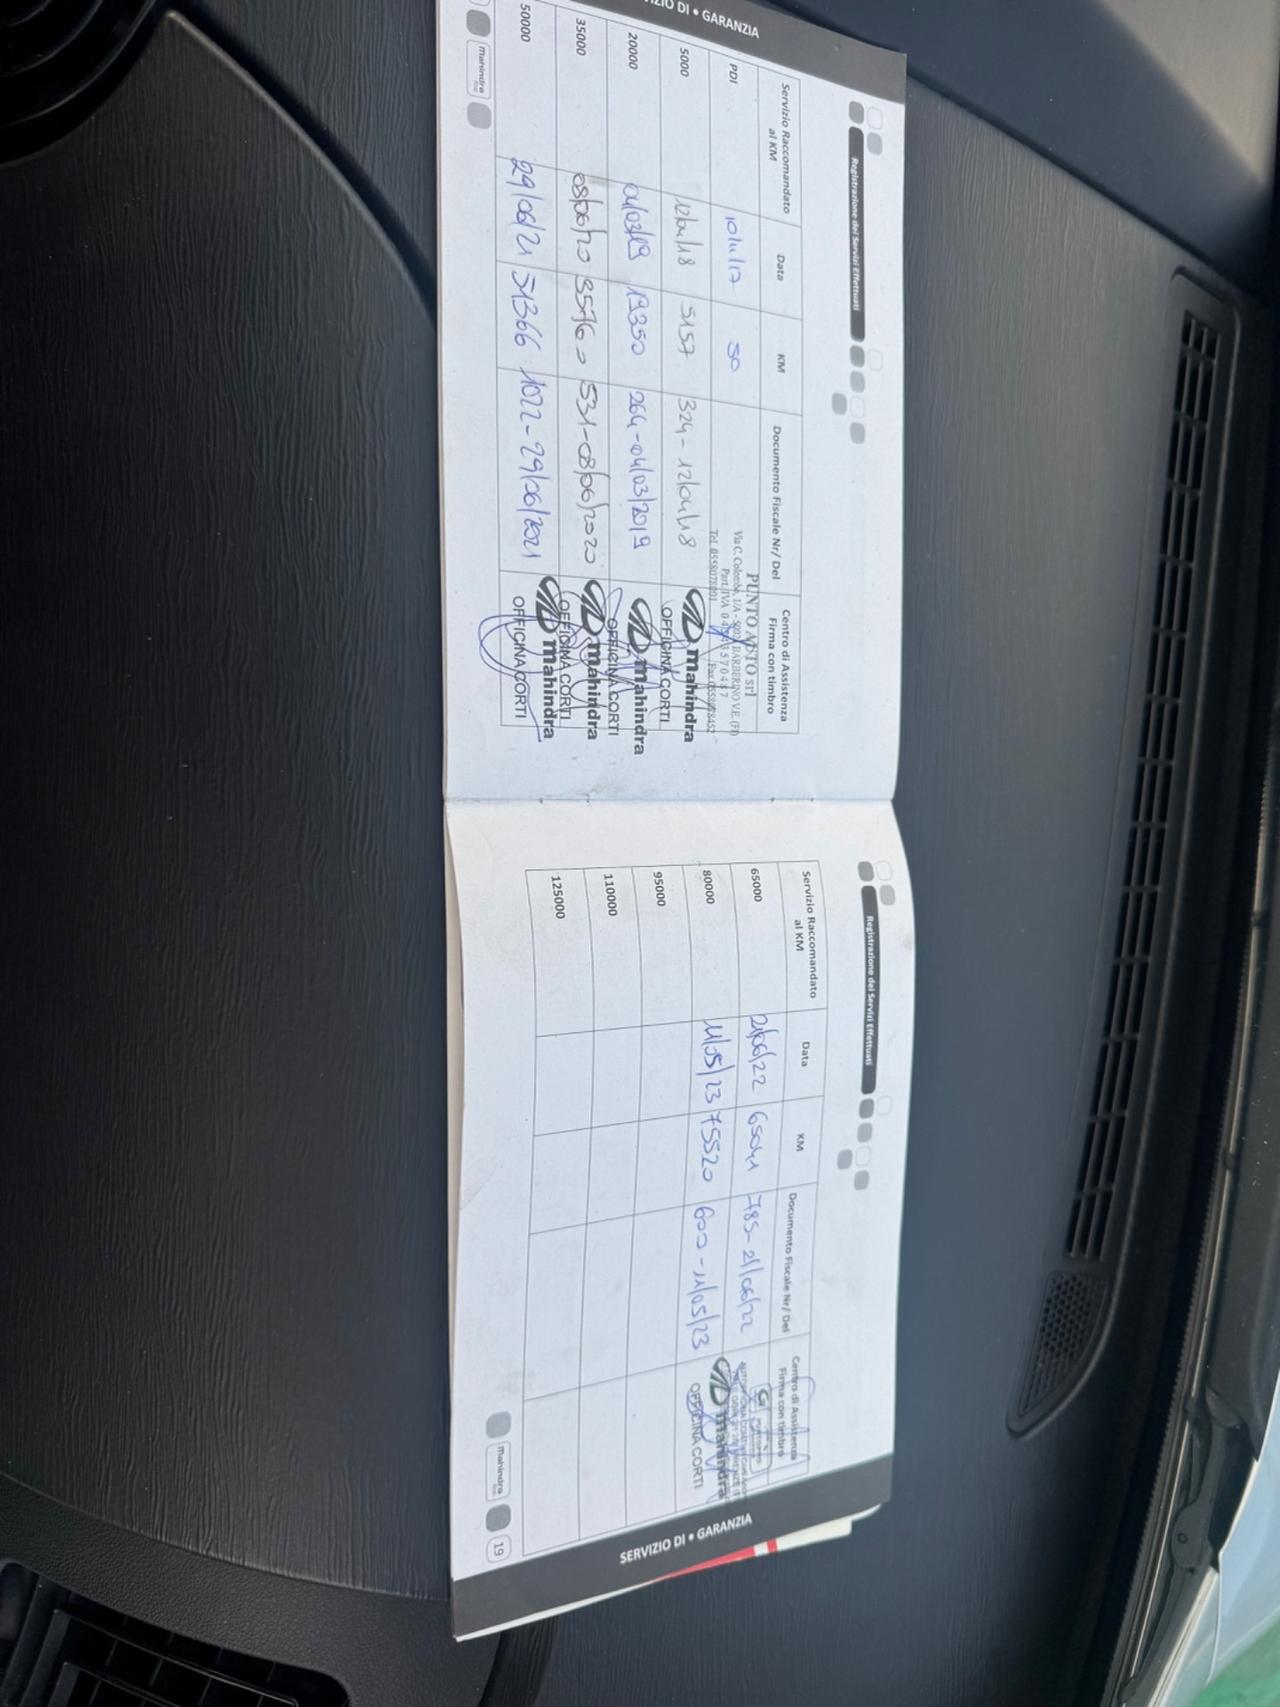 SERVIZIO DI • GARANZIA
Registrazione dei Servizi Effettuati
Servizio Raccomandato al KM Data KM Documento Fiscale Nr/ Del Centro di Assistenza Firma con timbro
PDI 10/11/17 50
PUNTO AUTO srl
Via C. Colombo, 1/A - BARBERINO V.E. (FI)
Part. IVA
Tel. 0558078001 Fax
5000 12/04/18 5157 324 - 12/04/18 mahindra
OFFICINA CORTI
20000 04/03/19 19350 264-04/03/2019 mahindra
OFFICINA CORTI
35000 08/06/20 35760 531-08/06/2020 mahindra
OFFICINA CORTI
50000 29/06/21 51366 1022-29/06/2021 mahindra
OFFICINA CORTI
mahindra
Registrazione dei Servizi Effettuati
Servizio Raccomandato al KM Data KM Documento Fiscale Nr/ Del Centro di Assistenza Firma con timbro
65000 21/06/22 65041 785-21/06/22
80000 11/05/23 75520 600-11/05/23 mahindra
OFFICINA CORTI
95000
110000
125000
mahindra 19
SERVIZIO DI • GARANZIA